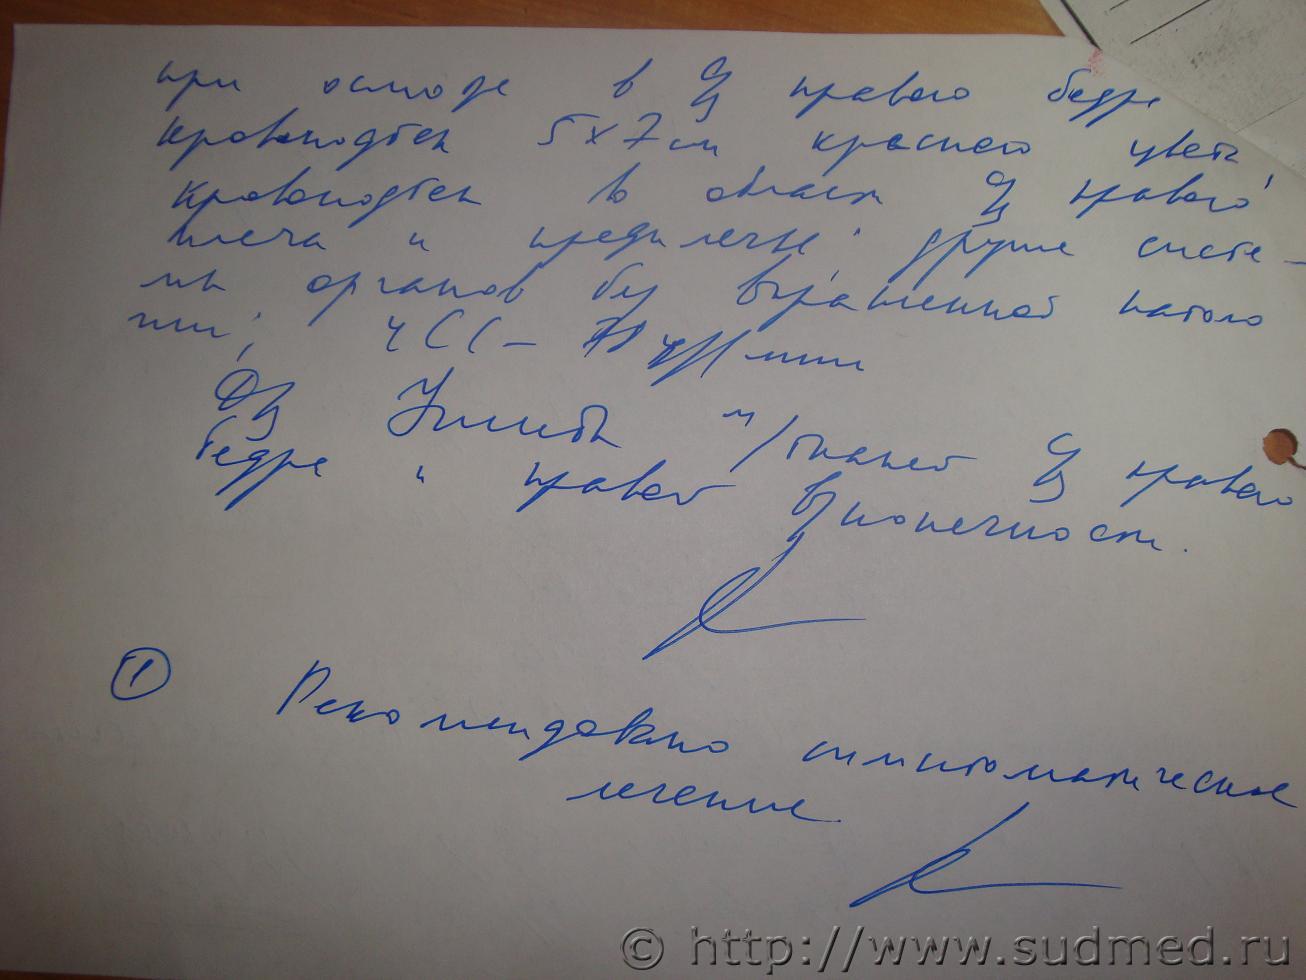 при осмотре в с/з правого бедра
кровоподтек 5х7см красного цвета,
кровоподтек в области с/з правого
плеча и предплечья; другие систе-
мы органов без выраженной патоло
гии; ЧСС - уд/мин
Дз Ушиб м/тканей с/з правого
бедра и правой в/конечности.
① Рекомендовано симптоматическое
лечение.
© http://www.sudmed.ru